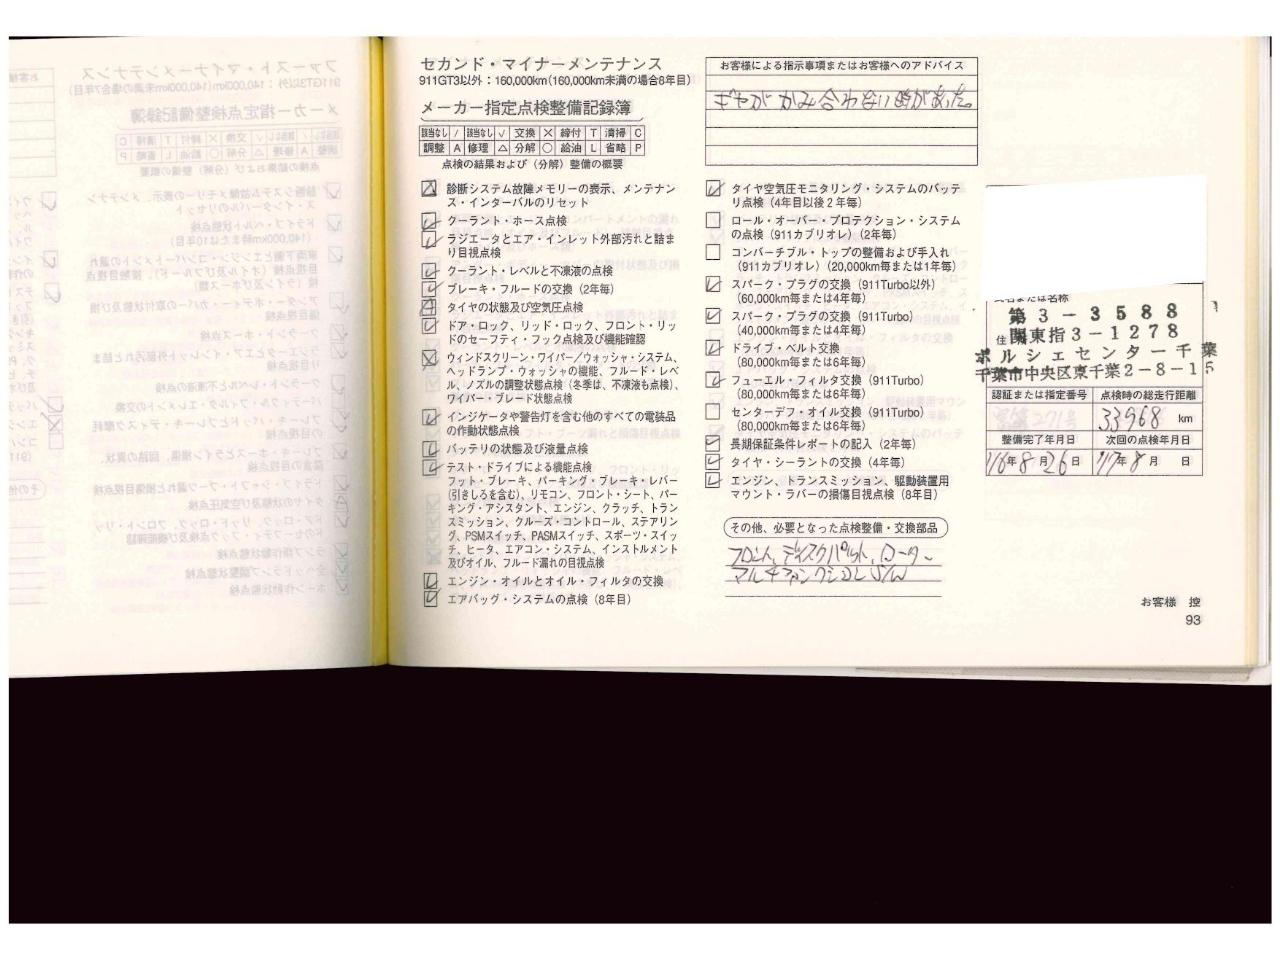 セカンド・マイナーメンテナンス
911GT3以外：160,000km(160,000km未満の場合8年目)
メーカー指定点検整備記録簿
該当なし / 該当なし √ 交換 × 締付 T 清掃 C
調整 A 修理 △ 分解 ○ 給油 L 省略 P
点検の結果および（分解）整備の概要
診断システム故障メモリーの表示、メンテナン
ス・インターバルのリセット
クーラント・ホース点検
ラジエータとエア・インレット外部汚れと詰ま
り目視点検
クーラント・レベルと不凍液の点検
ブレーキ・フルードの交換（2年毎）
タイヤの状態及び空気圧点検
ドア・ロック、リッド・ロック、フロント・リッ
ドのセーフティ・フック点検及び機能確認
ウィンドスクリーン・ワイパー／ウォッシャ・システム、
ヘッドランプ・ウォッシャの機能、フルード・レ
ベル、ノズルの調整状態点検（冬季は、不凍液も点検）、
ワイパー・ブレード状態点検
インジケータや警告灯を含む他のすべての電装品
の作動状態点検
バッテリの状態及び液量点検
テスト・ドライブによる機能点検
フット・ブレーキ、パーキング・ブレーキ・レバー
(引きしろを含む)、リモコン、フロント・シート、パー
キング・アシスタント、エンジン、クラッチ、トラン
スミッション、クルーズ・コントロール、ステアリン
グ、PSMスイッチ、PASMスイッチ、スポーツ・スイッ
チ、ヒータ、エアコン・システム、インストルメント
及びオイル、フルード漏れの目視点検
エンジン・オイルとオイル・フィルタの交換
エアバッグ・システムの点検（8年目）
お客様による指示事項またはお客様へのアドバイス
ギヤが かみ合わない時があった。
タイヤ空気圧モニタリング・システムのバッテ
リ点検（4年目以後2年毎）
ロール・オーバー・プロテクション・システム
の点検（911カブリオレ）（2年毎）
コンバーチブル・トップの整備および手入れ
（911カブリオレ）（20,000km毎または1年毎）
スパーク・プラグの交換（911Turbo以外）
（60,000km毎または4年毎）
スパーク・プラグの交換（911Turbo）
（40,000km毎または4年毎）
ドライブ・ベルト交換
（80,000km毎または6年毎）
フューエル・フィルタ交換（911Turbo）
（80,000km毎または6年毎）
センターデフ・オイル交換（911Turbo）
（80,000km毎または6年毎）
長期保証条件レポートの記入（2年毎）
タイヤ・シーラントの交換（4年毎）
エンジン、トランスミッション、駆動装置用
マウント・ラバーの損傷目視点検（8年目）
その他、必要となった点検整備・交換部品
フロント、ディスクパット、ローター
マルチファンクションS/W
または名称
第3－3588
住 関東指3－1278
ポルシェセンター千葉
千葉市中央区東千葉2－8－15
認証または指定番号 点検時の総走行距離
33968 km
整備完了年月日 次回の点検年月日
'16年 8月 26日 '17年 8月 日
お客様 控
93